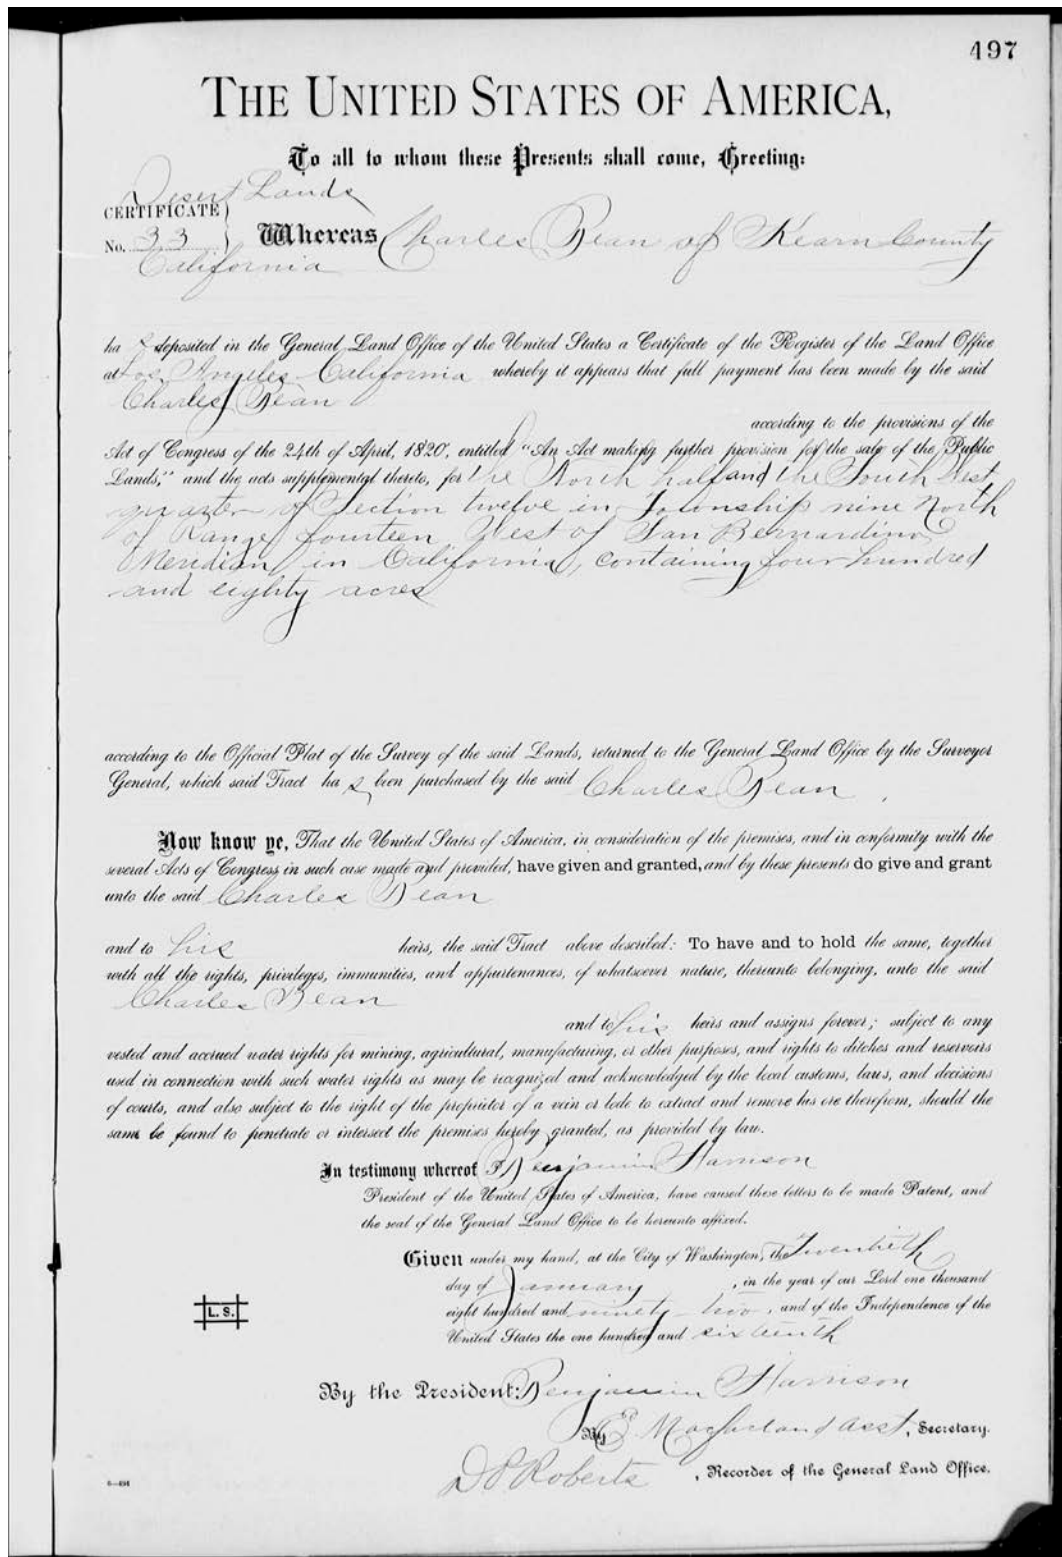 497
THE UNITED STATES OF AMERICA,
To all to whom these Presents shall come, Greeting:
Desert Lands
CERTIFICATE
No. 33 Whereas Charles Bean of Kearn County
California
ha s deposited in the General Land Office of the United States a Certificate of the Register of the Land Office
at Los Angeles California whereby it appears that full payment has been made by the said
Charles Bean
according to the provisions of the
Act of Congress of the 24th of April, 1820, entitled "An Act making further provision for the sale of the Public
Lands," and the acts supplemental thereto, for the North half and the South West
quarter of Section twelve in Township nine North
of Range fourteen West of San Bernardino
Meridian in California, containing four hundred
and eighty acres
according to the Official Plat of the Survey of the said Lands, returned to the General Land Office by the Surveyor
General, which said Tract ha s been purchased by the said Charles Bean
Now know ye, That the United States of America, in consideration of the premises, and in conformity with the
several Acts of Congress in such case made and provided, have given and granted, and by these presents do give and grant
unto the said Charles Bean
and to his heirs, the said Tract above described: To have and to hold the same, together
with all the rights, privileges, immunities, and appurtenances, of whatsoever nature, thereunto belonging, unto the said
Charles Bean
and to his heirs and assigns forever; subject to any
vested and accrued water rights for mining, agricultural, manufacturing, or other purposes, and rights to ditches and reservoirs
used in connection with such water rights as may be recognized and acknowledged by the local customs, laws, and decisions
of courts, and also subject to the right of the proprietor of a vein or lode to extract and remove his ore therefrom, should the
same be found to penetrate or intersect the premises hereby granted, as provided by law.
In testimony whereof I, Benjamin Harrison
President of the United States of America, have caused these letters to be made Patent, and
the seal of the General Land Office to be hereunto affixed.
Given under my hand, at the City of Washington, the Twentieth
day of January, in the year of our Lord one thousand
eight hundred and ninety two, and of the Independence of the
United States the one hundred and sixteenth
L. S.
By the President: Benjamin Harrison
By E Macfarland Asst, Secretary.
D P Roberts, Recorder of the General Land Office.